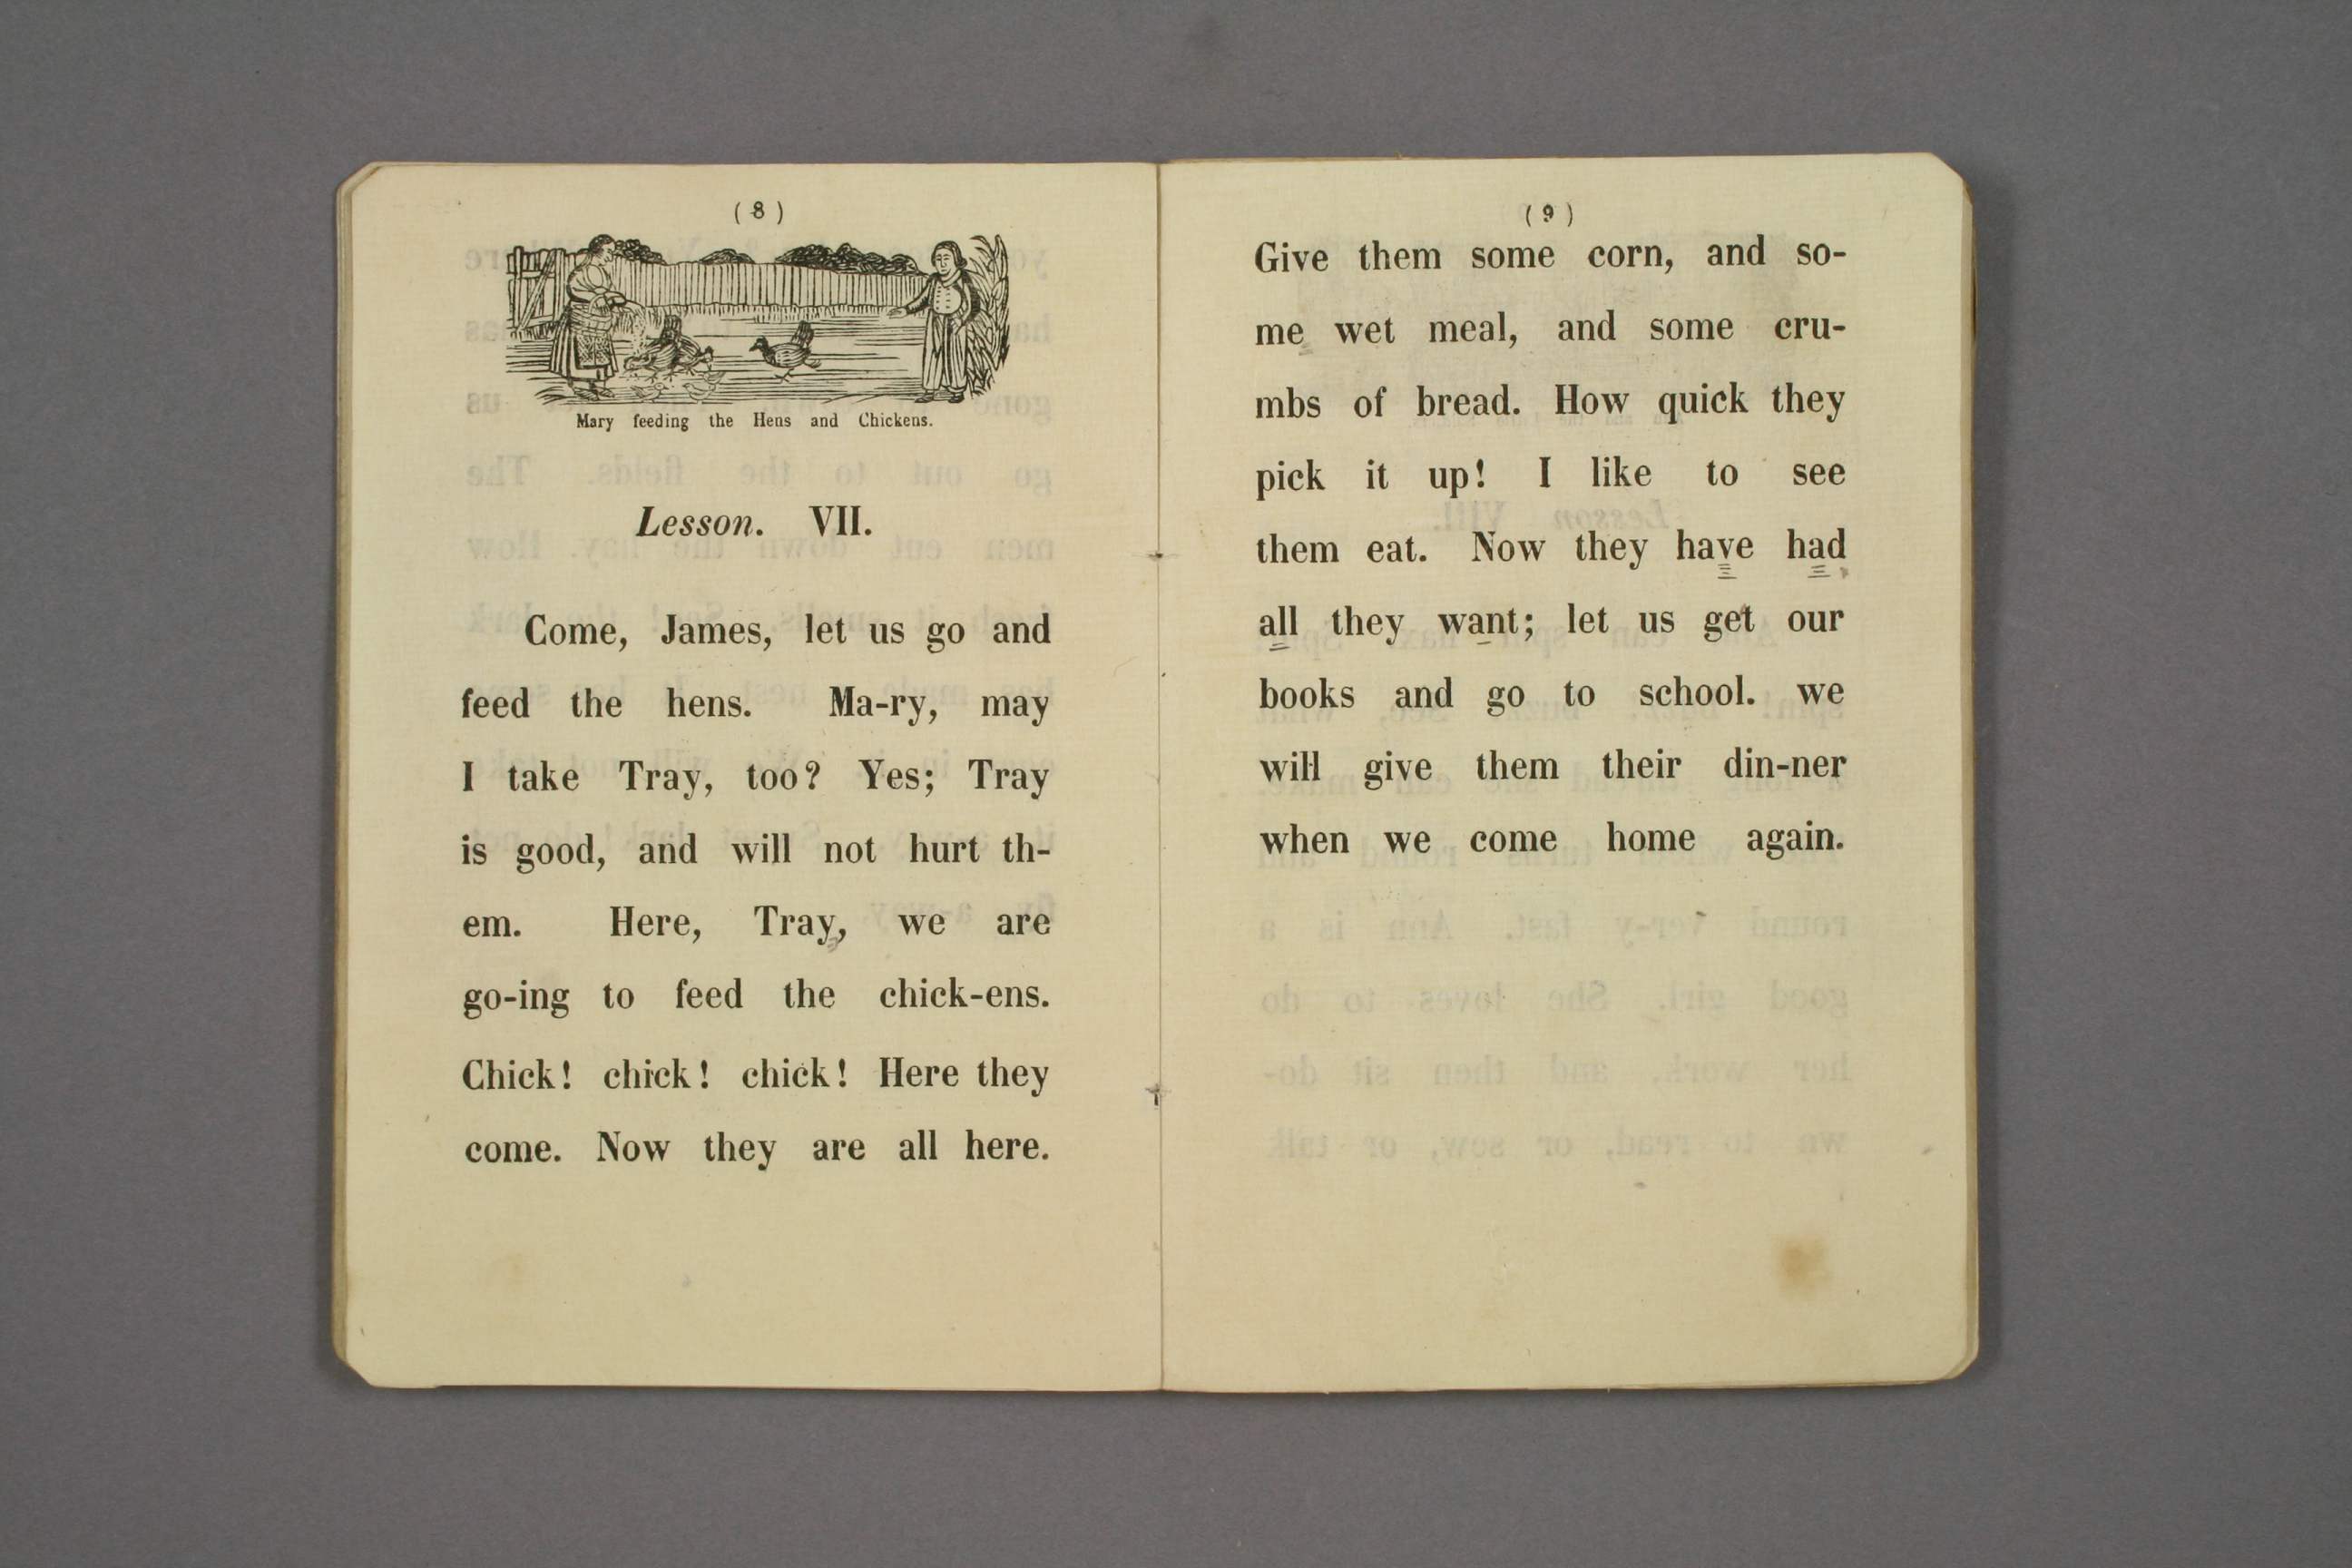 ( 8 )
Mary feeding the Hens and Chickens.
Lesson. VII.
Come, James, let us go and
feed the hens. Ma-ry, may
I take Tray, too? Yes; Tray
is good, and will not hurt th-
em. Here, Tray, we are
go-ing to feed the chick-ens.
Chick! chick! chick! Here they
come. Now they are all here.
( 9 )
Give them some corn, and so-
me wet meal, and some cru-
mbs of bread. How quick they
pick it up! I like to see
them eat. Now they have had
all they want; let us get our
books and go to school. we
will give them their din-ner
when we come home again.